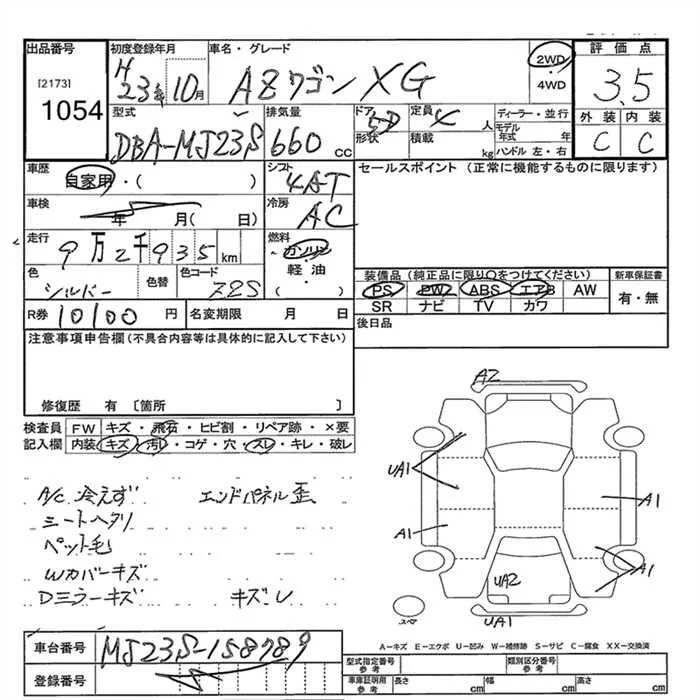 出品番号
[2173]
1054
初度登録年月
H23年10月
車名・グレード
AZワゴン XG
2WD
・
4WD
評価点
3.5
外装 内装
C C
型式
DBA-MJ23S
排気量
660 cc
ドア 形状
5D
定員
4人
積載
kg
ディーラー・並行
モデル年式 年
ハンドル 左・右
車歴
自家用・( )
シフト
4AT
セールスポイント (正常に機能するものに限ります)
車検
年 月( 日)
冷房
AC
走行
9万2千935km
燃料
ガソリン
・
軽油
・
( )
色
シルバー
色替
色コード
Z2S
装備品 (純正品に限り○をつけてください)
新車保証書
PS PW AABS エアB AW
SR ナビ TV カワ
有・無
R券 10100 円
名変期限 月 日
後日品
注意事項申告欄 (不具合内容等は具体的に記入して下さい)
修復歴 有 〔箇所 〕
検査員記入欄
FW キズ・飛石・ヒビ割・リペア跡・×要
内装 キズ・汚レ・コゲ・穴・スレ・キレ・破レ
A/C 冷えず エンドパネル歪
シートヘタリ
ペット毛
Wカバーキズ
Dミラーキズ キズ
A2
UA1
A1
A1
A1
UA2
UA1
スペア
A－キズ E－エクボ U－凹み W－補修跡 S－サビ C－腐食 XX－交換済
車台番号
MJ23S-158789
登録番号
型式指定番号 参考
類別区分番号 参考
車庫証明用 参考
長さ cm
幅 cm
高さ cm